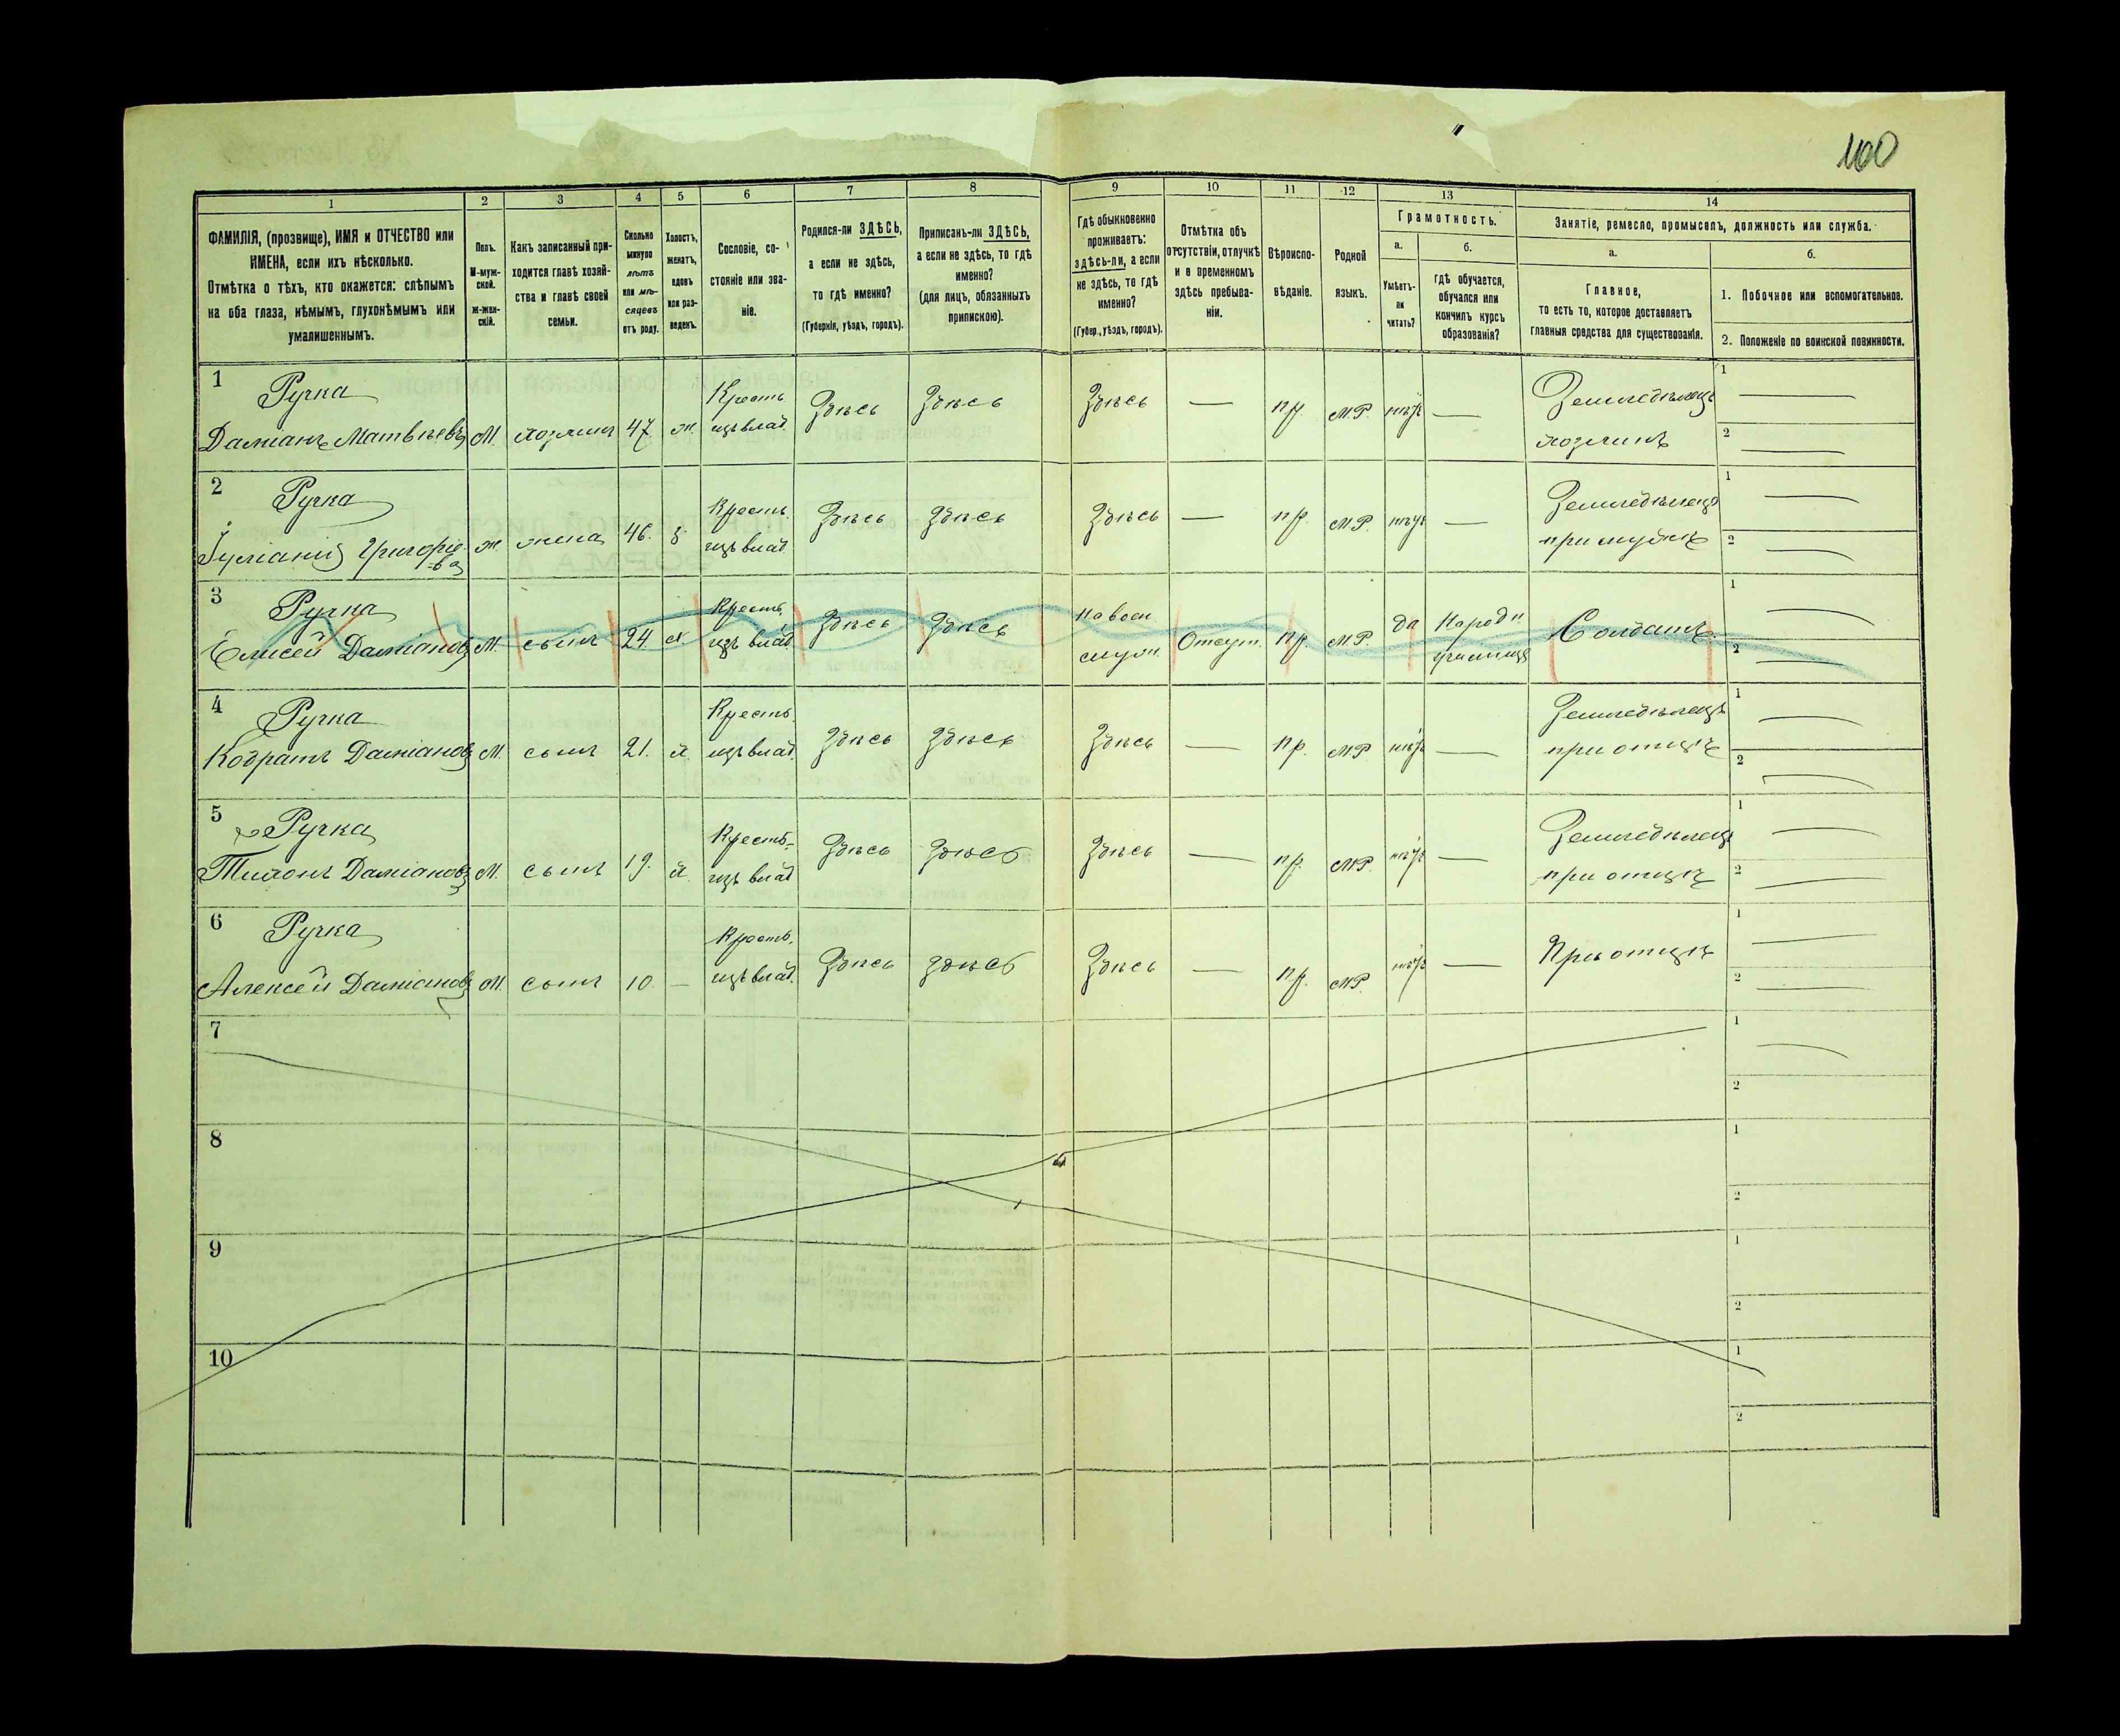 100
1 2 3 4 5 6 7 8 9 10 11 12 13 14
ФАМИЛІЯ, (прозвище), ИМЯ и ОТЧЕСТВО или
ИМЕНА, если ихъ нѣсколько.
Отмѣтка о тѣхъ, кто окажется: слѣпымъ
на оба глаза, нѣмымъ, глухонѣмымъ или
умалишеннымъ.
Полъ.
М-муж-
ской.
Ж-жен-
скій.
Какъ записанный при-
ходится главѣ хозяй-
ства и главѣ своей
семьи.
Сколько
минуло
лѣтъ
или мѣ-
сяцевъ
отъ роду.
Холостъ,
женатъ,
вдовъ
или раз-
веденъ.
Сословіе, со-
стояніе или зва-
ніе.
Родился-ли ЗДѢСЬ,
а если не здѣсь,
то гдѣ именно?
(Губернія, уѣздъ, городъ).
Приписанъ-ли ЗДѢСЬ,
а если не здѣсь, то гдѣ
именно?
(для лицъ, обязанныхъ
припискою).
Гдѣ обыкновенно
проживаетъ:
здѣсь-ли, а если
не здѣсь, то гдѣ
именно?
(Губер., уѣздъ, городъ).
Отмѣтка объ
отсутствіи, отлучкѣ
и о временномъ
здѣсь пребыва-
ніи.
Вѣроиспо-
вѣданіе.
Родной
языкъ.
Грамотность.
а.
Умѣетъ-
ли
читать?
б.
гдѣ обучается,
обучался или
кончилъ курсъ
образованія?
Занятіе, ремесло, промыселъ, должность или служба.
а.
Главное,
то есть то, которое доставляетъ
главныя средства для существованія.
б.
1. Побочное или вспомогательное.
2. Положеніе по воинской повинности.
1 Ручка
Даміанъ Матвѣевъ М. хозяинъ 47 ж. Кресть. изъ влад. Здѣсь Здѣсь Здѣсь — пр. МР. нѣтъ — Земледѣлецъ хозяинъ 1 — 2 —
2 Ручка
Іуліанія Григоріе-
ва ж жена 46. з Кресть. изъ влад. Здѣсь Здѣсь Здѣсь — пр. МР. нѣтъ — Земледѣлецъ при мужѣ 1 — 2 —
3 Ручка
Елисей Даміановъ М. сынъ 24. х Кресть. изъ влад. Здѣсь Здѣсь На воен служ. Отсут. пр. МР. да Народн училищѣ Солдатъ 1 — 2 —
4 Ручка
Кодратъ Даміановъ М. сынъ 21. х Кресть. изъ влад. Здѣсь Здѣсь Здѣсь — пр. МР нѣтъ — Земледѣлецъ при отцѣ 1 — 2 —
5 Ручка
Тихонъ Даміановъ М. сынъ 19. х. Кресть- изъ влад Здѣсь Здѣсь Здѣсь — пр. МР. нѣтъ — Земледѣлецъ при отцѣ 1 — 2 —
6 Ручка
Алексей Даміановъ М. сынъ 10 — Кресть. изъ влад. Здѣсь Здѣсь Здѣсь — пр. МР. нѣтъ — При отцѣ 1 — 2 —
7 1 — 2
8 1 2
9 1 2
10 1 2